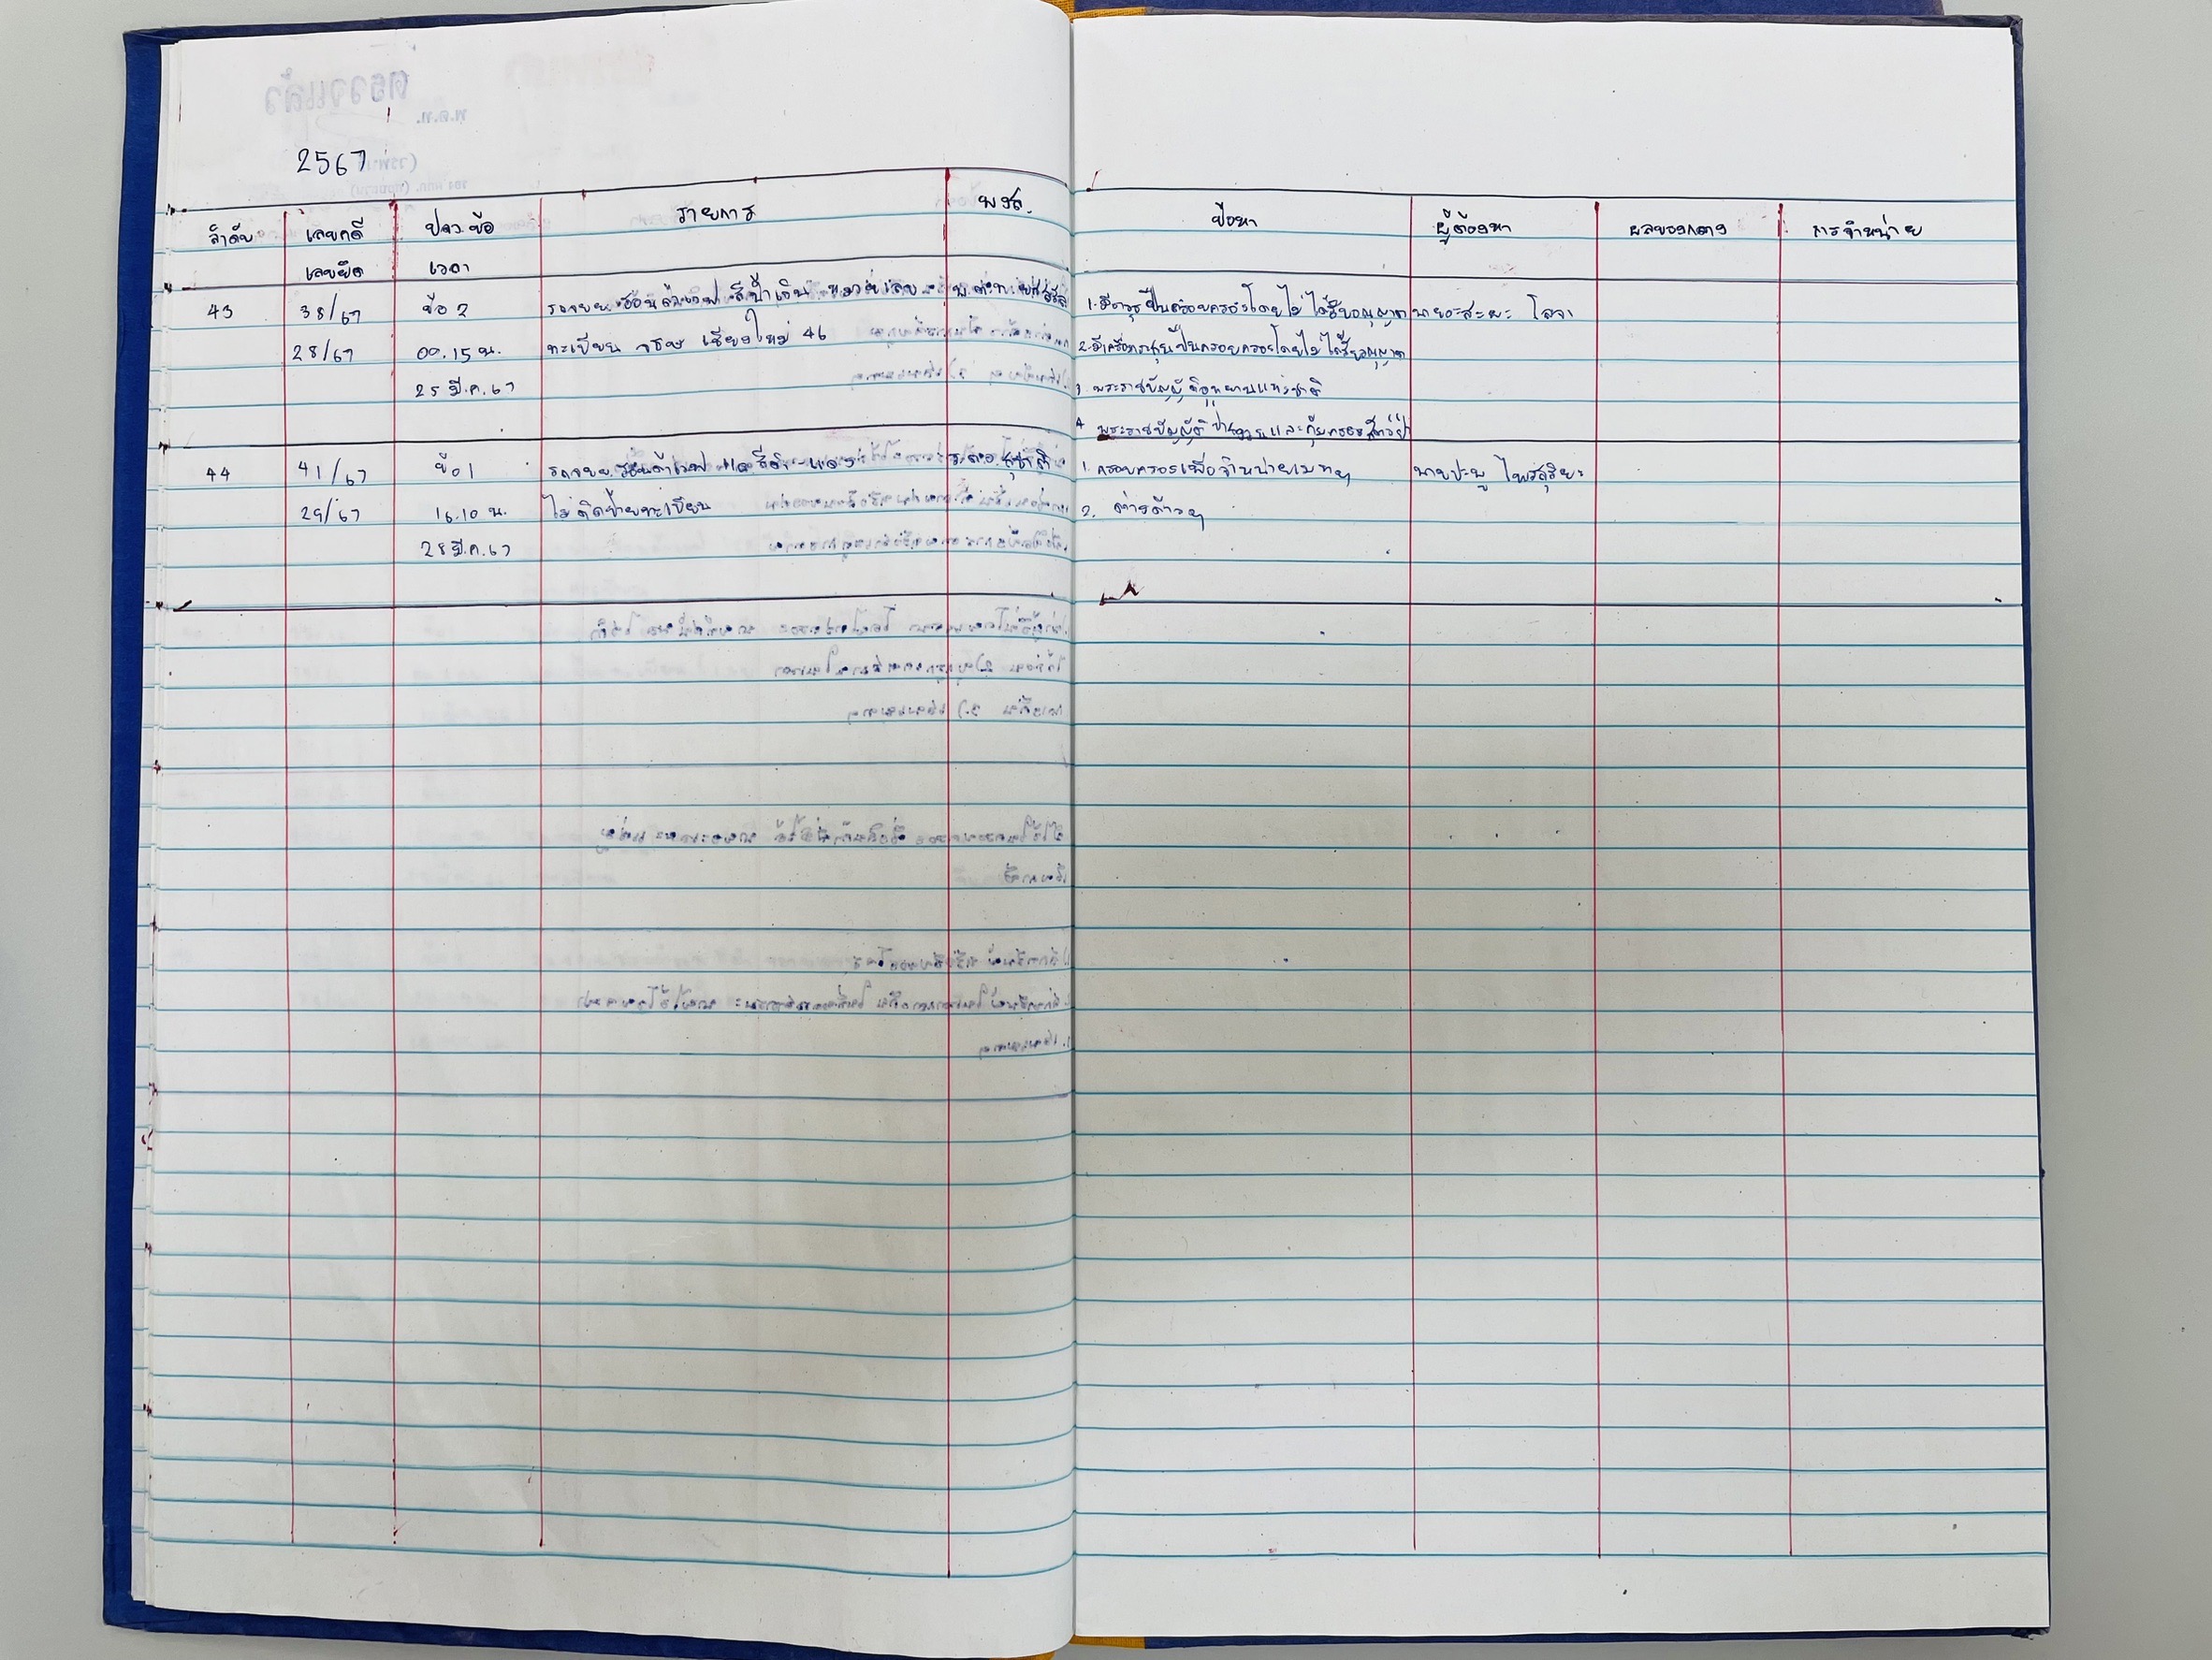 2567
ลำดับ เลขคดี ปจว.ข้อ รายการ พงส. ข้อหา ผู้ต้องหา ผลของกลาง การจำหน่าย
เลขยึด เวลา
43 38/67 ข้อ 2 รถจยย.ฮอนด้าเวฟ สีน้ำเงิน หมายเลข พ.ต.ท. 1.มีอาวุธปืนครอบครองโดยไม่ได้รับอนุญาต
28/67 00.15 น. ทะเบียน เชียงใหม่ 46 2.มีเครื่องกระสุนปืนครอบครองโดยไม่ได้รับอนุญาต
25 มี.ค.67 3. พระราชบัญญัติอุทยานแห่งชาติ
4 พระราชบัญญัติ และคุ้มครองสัตว์ป่า
44 41/67 ข้อ 1 รถจยย.ฮอนด้าเวฟ สีดำ-แดง ร.ต.อ.สุชาติ 1. ครอบครองเพื่อจำหน่ายเมทฯ
29/67 16.10 น. ไม่ติดป้ายทะเบียน 2. ต่างด้าวฯ
28 มี.ค.67